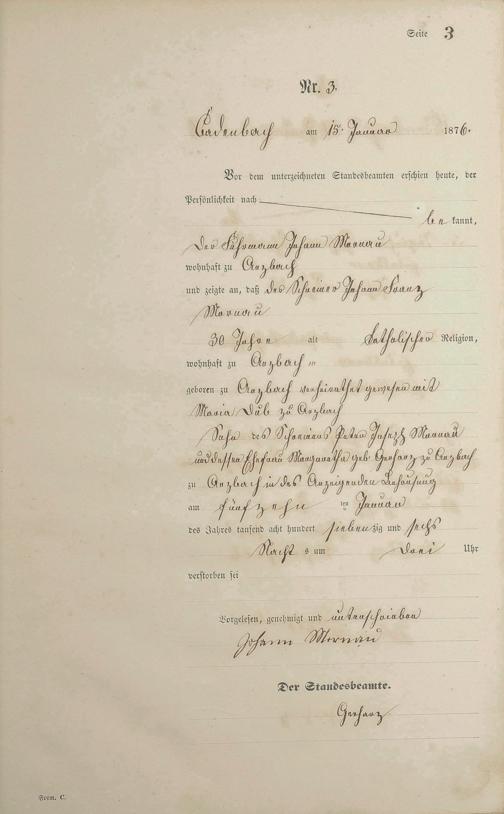 Seite 3
Nr. 3.
Cadenbach am 15. Januar 1876.
Vor dem unterzeichneten Standesbeamten erschien heute, der
Persönlichkeit nach
be kannt,
Der Fuhrmann Johann Mornau
wohnhaft zu Arzbach
und zeigte an, daß der Schreiner Johann Franz
Mornau
30 Jahre alt katholischer Religion,
wohnhaft zu Arzbach
geboren zu Arzbach verheirathet gewesen mit
Maria Düb zu Arzbach
Sohn des Schreiners Peter Joseph Mornau
und dessen Ehefrau Margaretha geb. Gerharz zu Arzbach
zu Arzbach in des Anzeigenden Behausung
am fünfzehn ten Januar
des Jahres tausend acht hundert siebenzig und sechs
Nacht s um drei Uhr
verstorben sei
Vorgelesen, genehmigt und unterschrieben
Johann Mornau
Der Standesbeamte.
Gerharz
Form. C.